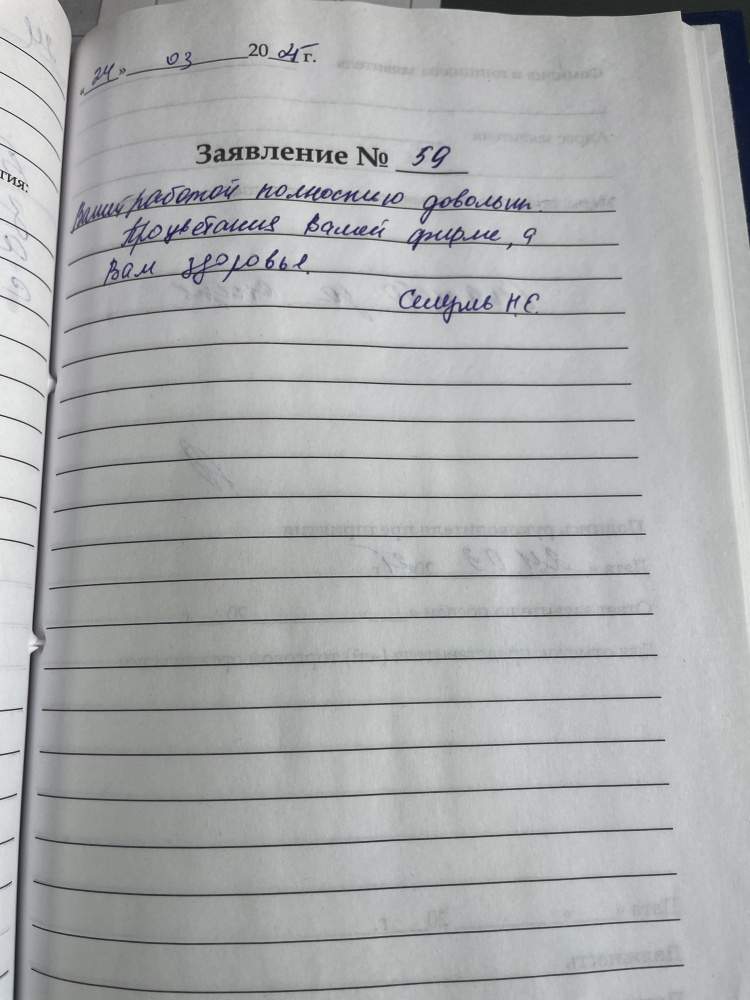 «24» 03 2025 г.
Заявление № 59
Вашей работой полностью довольны.
Процветания Вашей фирме, а
Вам здоровья.
Н.Е.
тия: